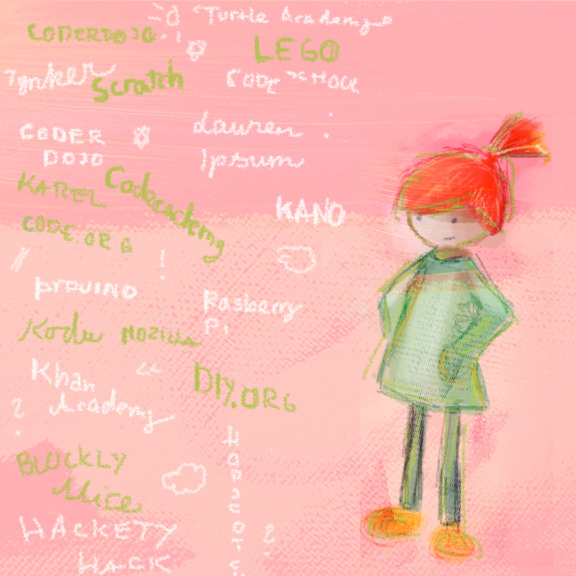 "Turtle Academy"
CODERDOJO
LEGO
Tynker
Scratch
CODE SCHOOL
CODER
DOJO
Lauren
Ipsum
KAREL
Codecademy
KANO
CODE.ORG
!
ARDUINO
Rasberry
Pi
Kodu
MOZILLA
Khan
Academy
DIY.ORG
?
BLOCKLY
Alice
HOPSCOTCH
?
HACKETY
HACK